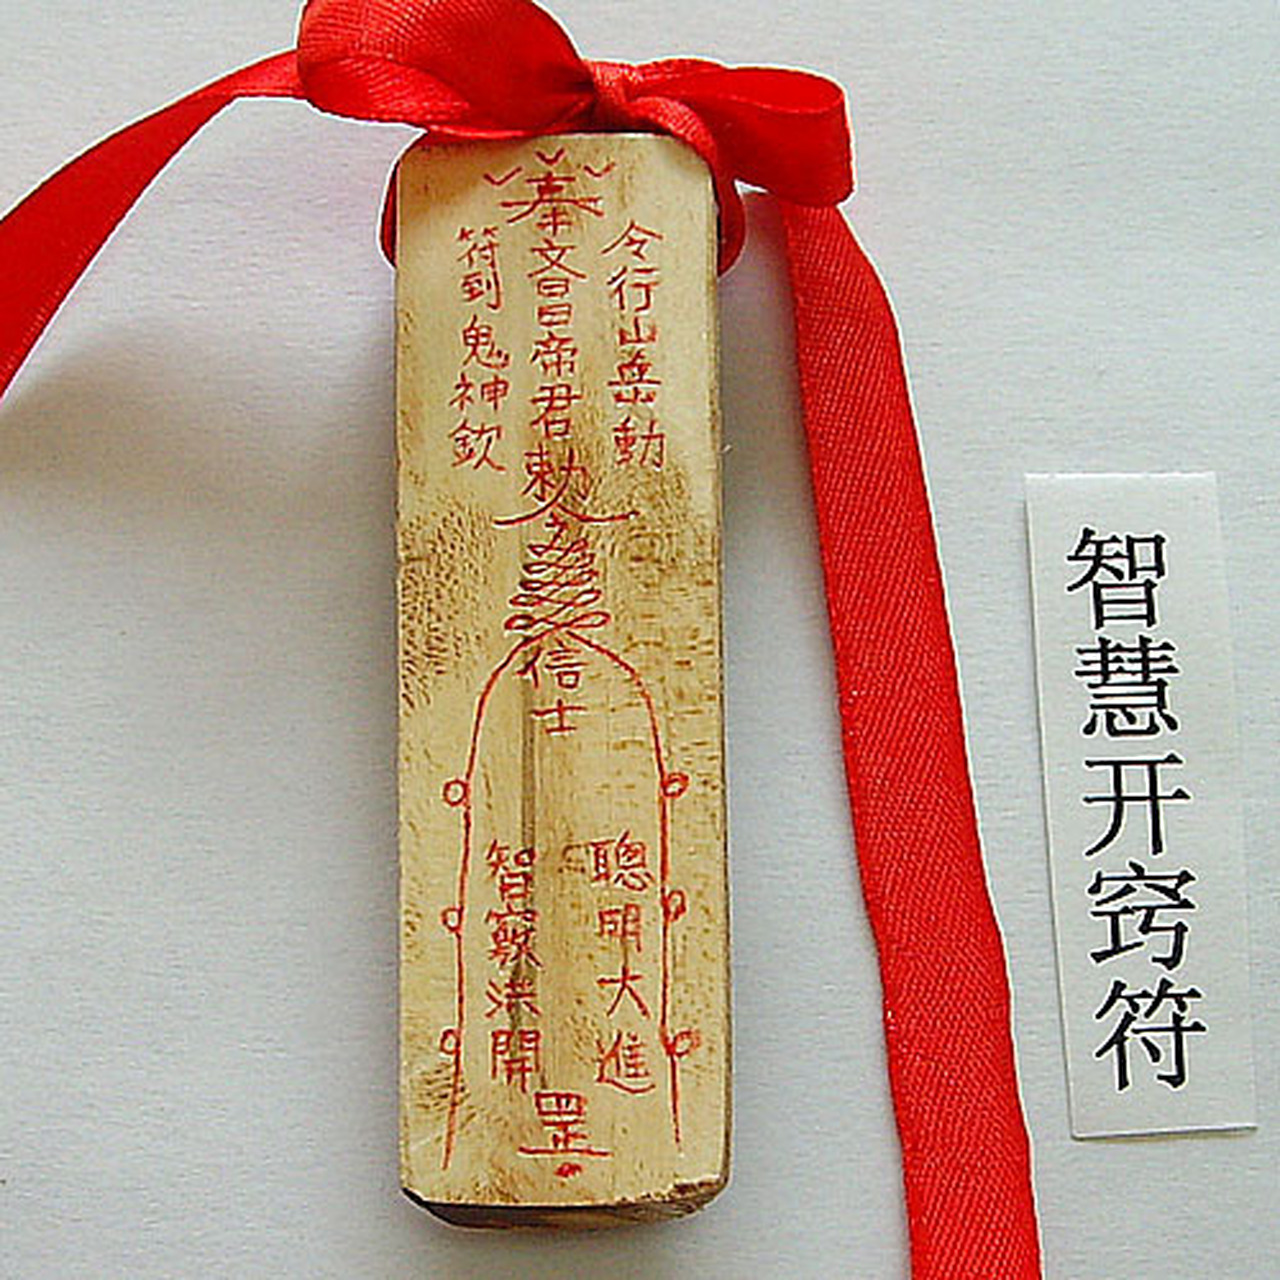 奉文昌帝君勅
令行山岳動
符到鬼神欽
信士
聰明大進
智竅洪開
罡
智慧开窍符